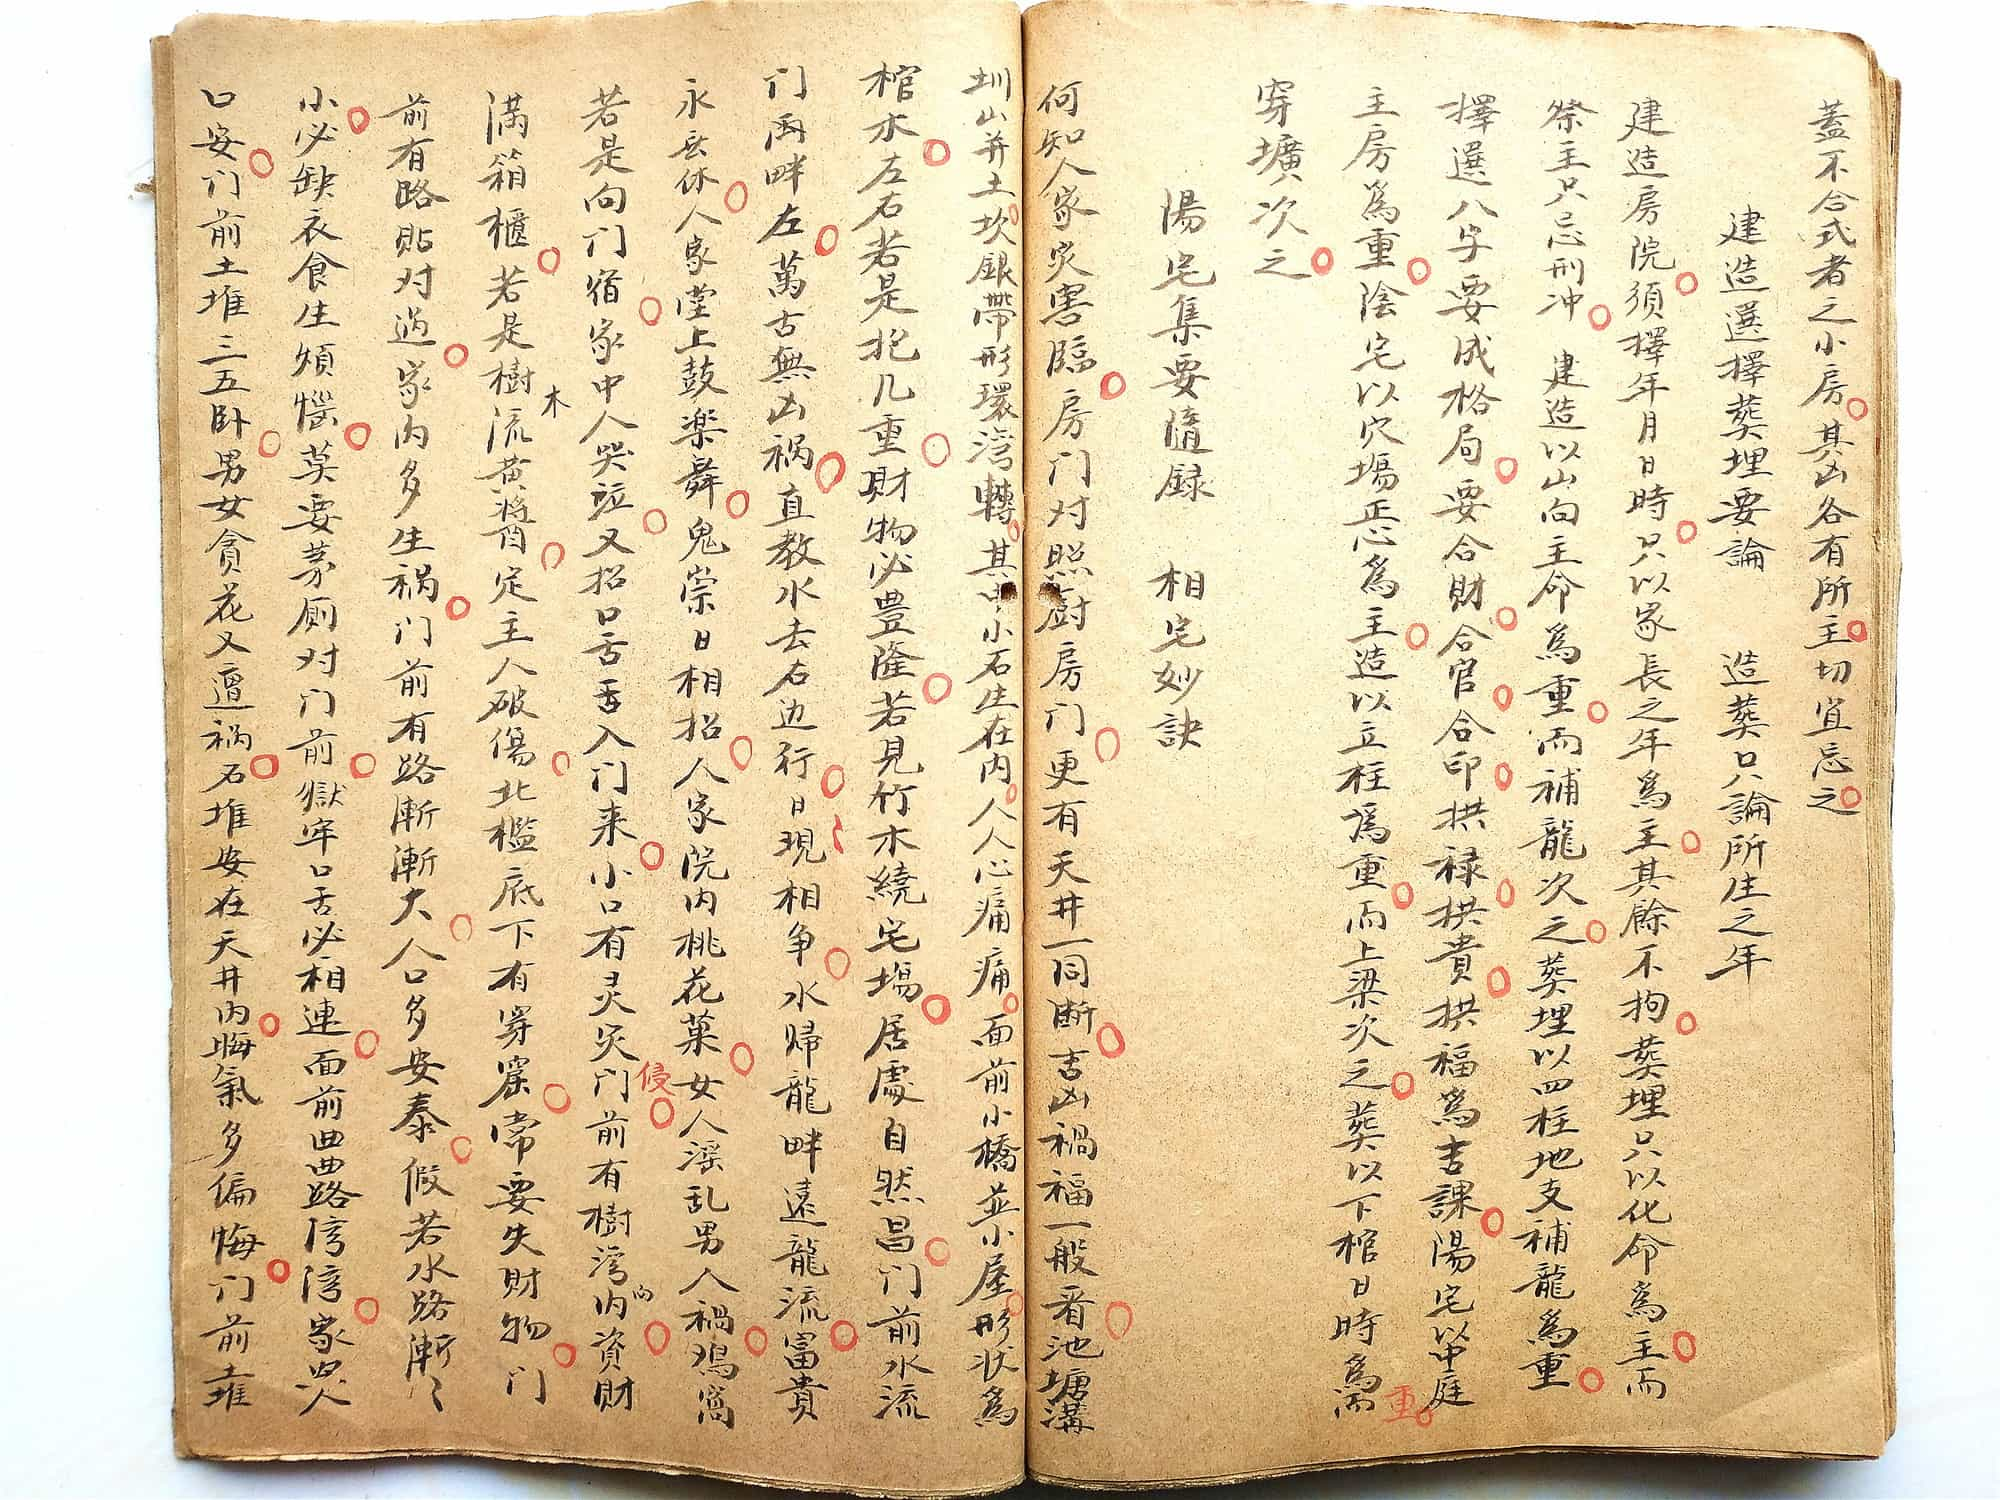 蓋不合式者之小房。其凶各有所主。切宜忌之。
建造選擇葬埋要論　造葬只論所生之年
建造房院。須擇年月日時。只以家長之年為主。其餘不拘。葬埋只以化命為主。而
祭主只忌刑冲。建造以山向主命為重。而補龍次之。葬埋以四柱地支補龍為重。
擇選八字要成格局。要合財。合官。合印。拱禄。拱貴。拱福為吉課。陽宅以中庭
主房為重。陰宅以穴場正心為主。造以立柱為重。而上梁次之。葬以下棺日時為重。而
穿壙次之。
陽宅集要隨録　相宅妙訣
何知人家灾害臨。房门对照厨房门。更有天井一同断。吉凶禍福一般看。池塘溝
圳山并土坎。銀帶形環湾轉。其中小石生在内。人人心痛痛。面前小橋並小屋。形状為
棺木。左右若是抱几重。財物必豊隆。若見竹木繞宅場。居處自然昌。门前水流
门両畔左。萬古無凶祸。直教水去右边行。日現相争。水帰龍畔遠龍流。富貴
永無休。人家堂上鼓楽舞。鬼祟日相招。人家院内桃花菓。女人滛乱男人禍。鸡窩
若是向门宿。家中人哭泣。又招口舌舌入门来。小口有灵灾。门前有樹湾内向。資財侵
满箱櫃。若是樹木流黄醬。定主人破傷。北檻底下有穿窟。常要失財物。门
前有路貼对過。家内多生祸。门前有路漸漸大。人口多安泰。假若水路漸々
小。必缺衣食生煩惱。莫要茅厕对门前。獄牢口舌必相連。面前曲曲路湾湾。家哭
口安。门前土堆三五卧。男女貪花又遭祸。石堆安在天井内。晦氣多偏悔。门前土堆